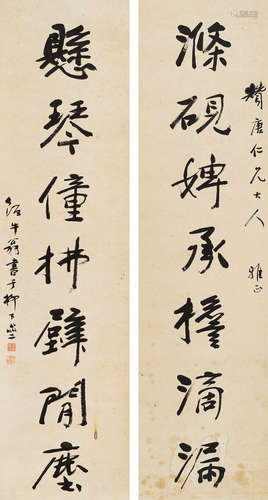 唐仁兄大人 雅正
滌硯婢承檐滴漏
懸琴僮拂壁間塵
牛翁書于柳下